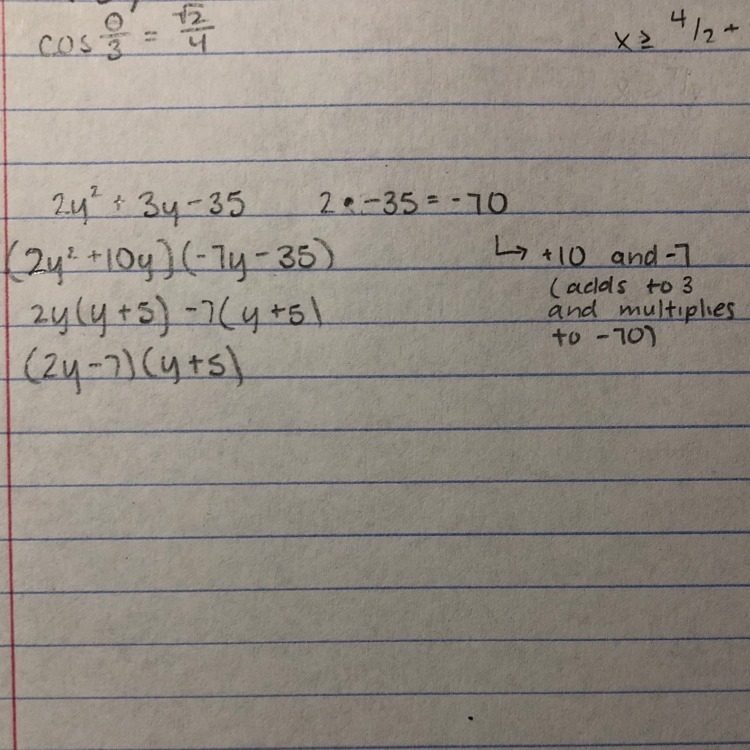 cos θ/3 = √2/4
x ≥ 4/2 +
2y² + 3y - 35
2 • -35 = -70
(2y² + 10y)(-7y - 35)
↳ +10 and -7
2y(y + 5) - 7(y + 5)
(adds to 3
and multiplies
to -70)
(2y - 7)(y + 5)